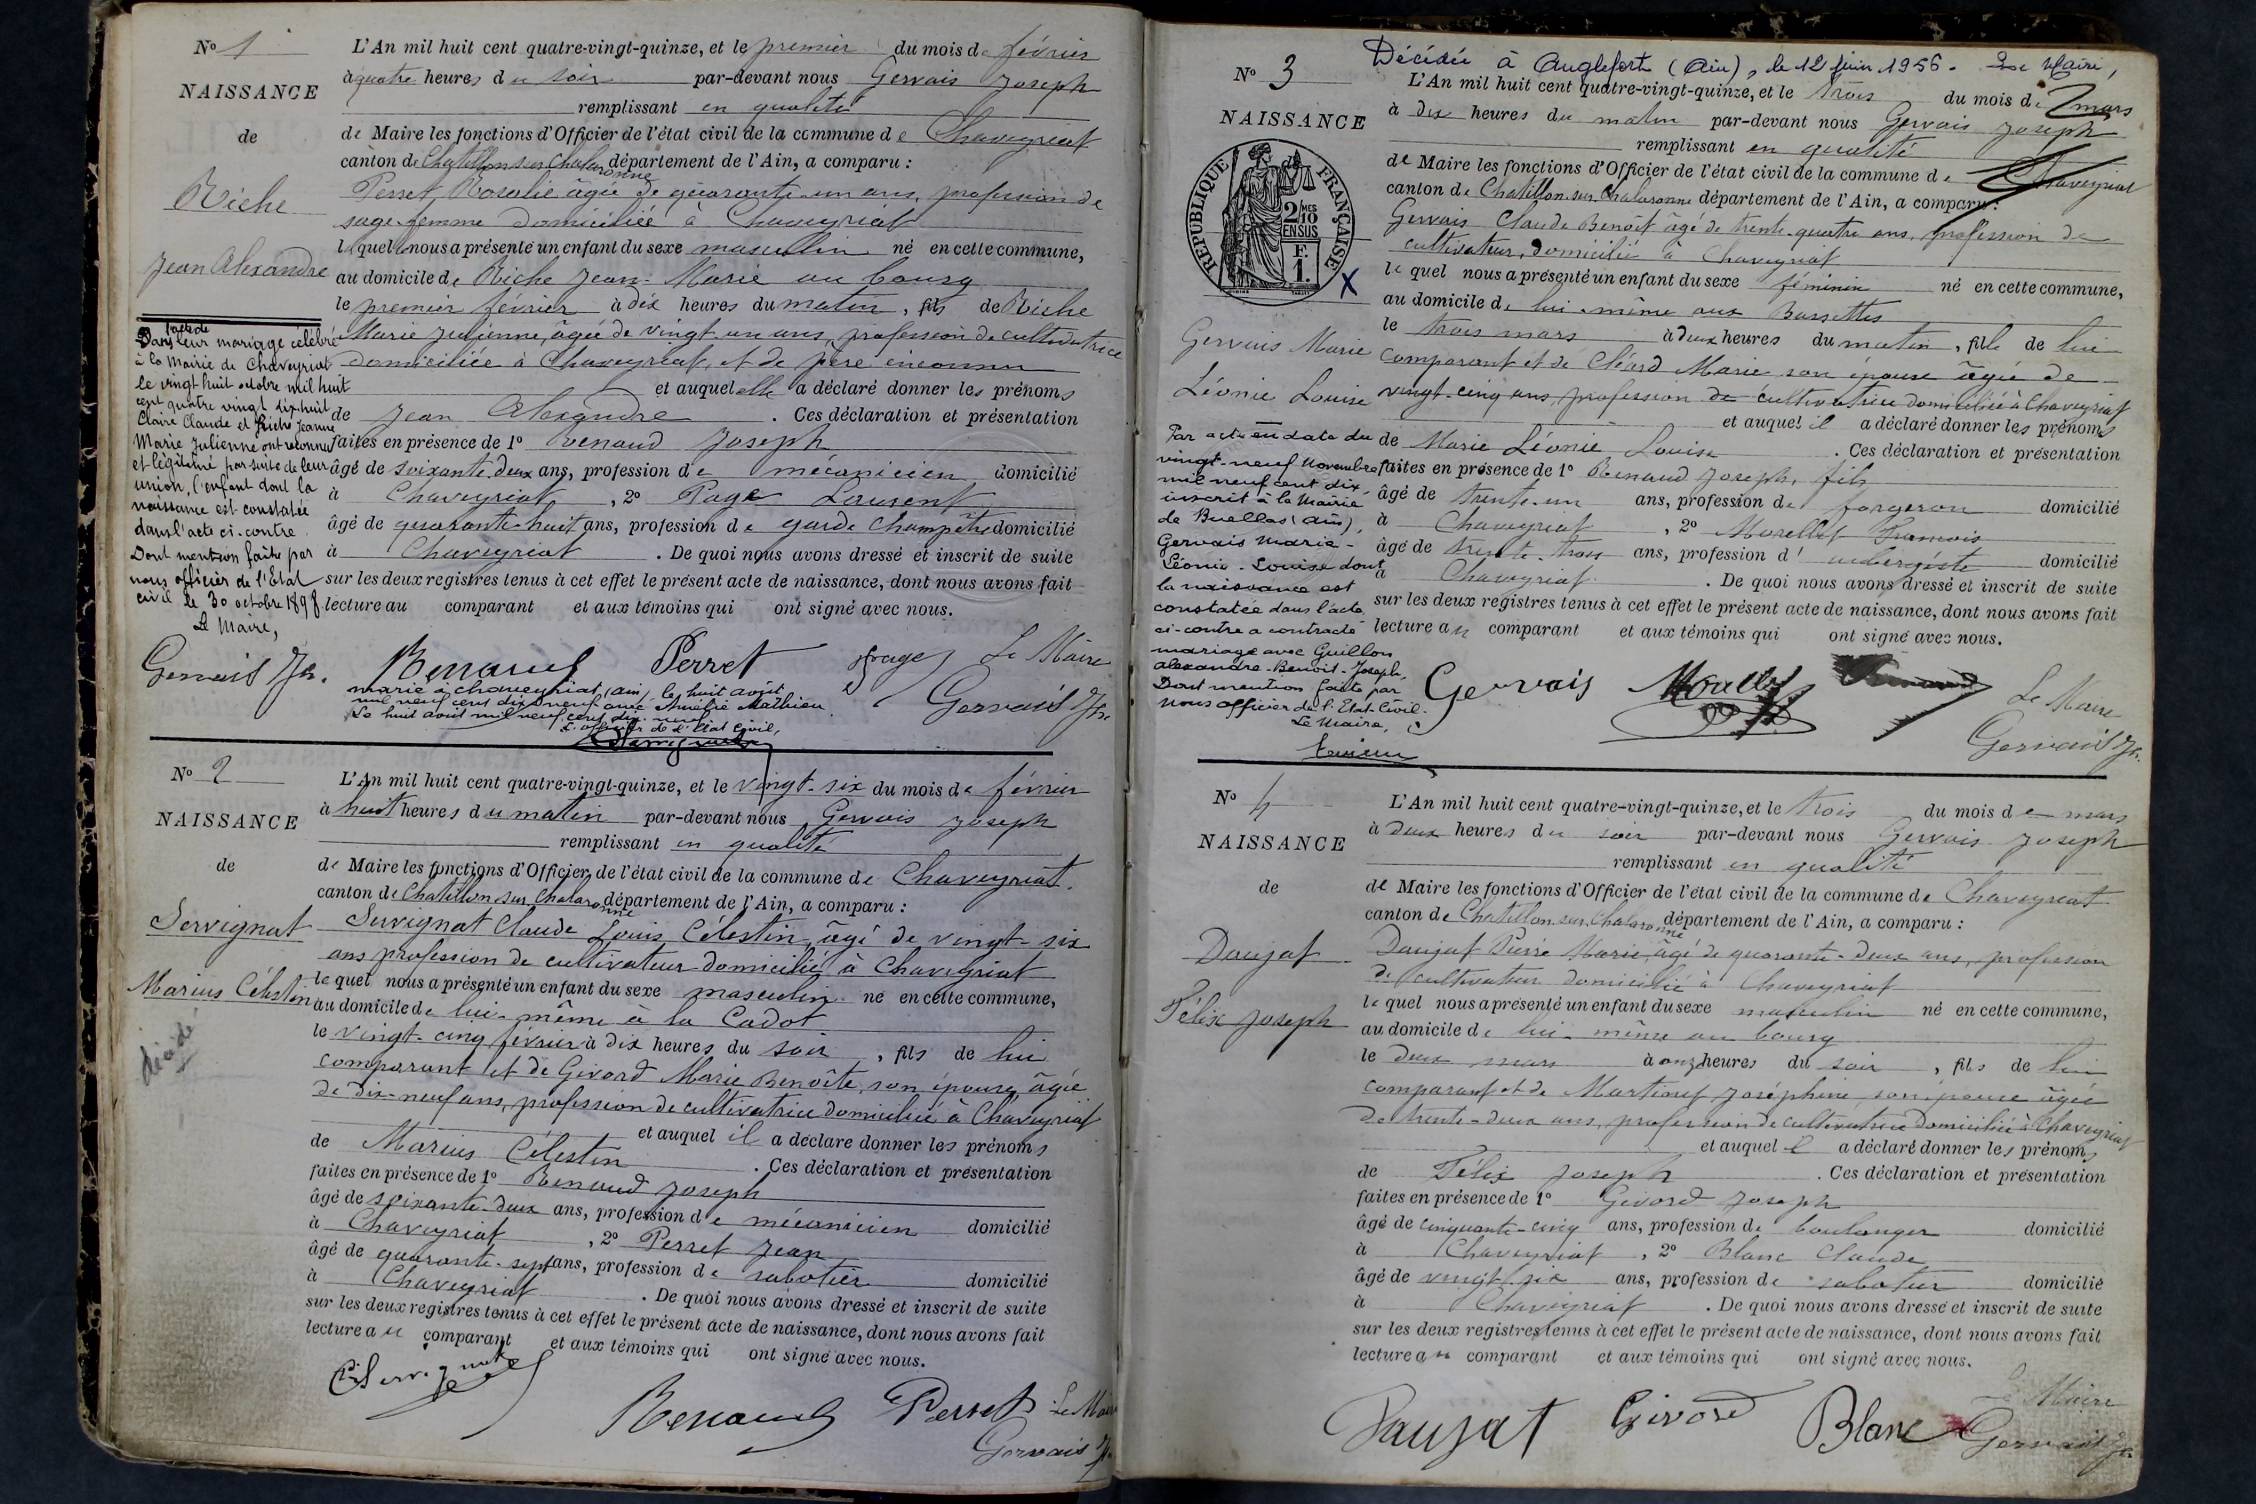 No 1
NAISSANCE
de
Riche
Jean Alexandre
L'An mil huit cent quatre-vingt-quinze, et le premier du mois de février
à quatre heures du soir par-devant nous Gervais Joseph
remplissant en qualité
de Maire les fonctions d'Officier de l'état civil de la commune de Chaveyriat
canton de Chatillon sur Chalaronne département de l'Ain, a comparu :
Perret Rosalie âgée de quarante-un ans, profession de
sage-femme domiciliée à Chaveyriat
lequel nous a présenté un enfant du sexe masculin né en cette commune,
au domicile de Riche Jean-Marie au bourg
le premier février à dix heures du matin, fils de Riche
Marie Julienne, âgée de vingt-un ans, profession de cultivatrice
domiciliée à Chaveyriat, et de père inconnu
et auquel elle a déclaré donner les prénoms
de Jean Alexandre. Ces déclaration et présentation
faites en présence de 1o Renaud Joseph
âgé de soixante-deux ans, profession de mécanicien domicilié
à Chaveyriat, 2o Page Laurent
âgé de quarante-huit ans, profession de garde champêtre domicilié
à Chaveyriat. De quoi nous avons dressé et inscrit de suite
sur les deux registres tenus à cet effet le présent acte de naissance, dont nous avons fait
lecture au comparant et aux témoins qui ont signé avec nous.
Dans l'acte de leur mariage célébré
à la Mairie de Chaveyriat
le vingt huit octobre mil huit
cent quatre vingt dix-huit
Claire Claude et Riche Jeanne
Marie Julienne ont reconnu
et légitimé par suite de leur
union, l'enfant dont la
naissance est constatée
dans l'acte ci-contre
Dont mention faite par
nous officier de l'Etat
civil le 30 octobre 1898
Le Maire,
Gervais Jh.
Renaud Perret Page Le Maire
Gervais Jh
Marié à Chaveyriat (Ain) le huit août
mil neuf cent dix neuf avec Amélie Mathieu
Le huit août mil neuf cent dix-neuf
L'officier de l'Etat Civil,
No 2
NAISSANCE
de
Servignat
Marius Célestin
décédé
L'An mil huit cent quatre-vingt-quinze, et le vingt-six du mois de février
à huit heures du matin par-devant nous Gervais Joseph
remplissant en qualité
de Maire les fonctions d'Officier de l'état civil de la commune de Chaveyriat.
canton de Chatillon sur Chalaronne département de l'Ain, a comparu :
Servignat Claude Louis Célestin, âgé de vingt-six
ans profession de cultivateur domicilié à Chaveyriat
lequel nous a présenté un enfant du sexe masculin né en cette commune,
au domicile de lui-même à la Cadot
le vingt-cinq février à dix heures du soir, fils de lui
comparant et de Givord Marie Benoîte, son épouse, âgée
de dix-neuf ans, profession de cultivatrice domiciliée à Chaveyriat
et auquel il a déclaré donner les prénoms
de Marius Célestin. Ces déclaration et présentation
faites en présence de 1o Renaud Joseph
âgé de soixante-deux ans, profession de mécanicien domicilié
à Chaveyriat, 2o Perret Jean
âgé de quarante-sept ans, profession de sabotier domicilié
à Chaveyriat. De quoi nous avons dressé et inscrit de suite
sur les deux registres tenus à cet effet le présent acte de naissance, dont nous avons fait
lecture au comparant et aux témoins qui ont signé avec nous.
Cl Servignat
Renaud Perret Le Maire
Gervais Jh
Décédée à Anglefort (Ain), le 12 juin 1956. Le Maire,
No 3
NAISSANCE
RÉPUBLIQUE FRANÇAISE
2 MES
10
EN SUS
F.
1.
X
Gervais Marie
Léonie Louise
L'An mil huit cent quatre-vingt-quinze, et le trois du mois de mars
à dix heures du matin par-devant nous Gervais Joseph
remplissant en qualité
de Maire les fonctions d'Officier de l'état civil de la commune de Chaveyriat
canton de Chatillon sur Chalaronne département de l'Ain, a comparu :
Gervais Claude Benoît âgé de trente-quatre ans, profession de
cultivateur, domicilié à Chaveyriat
lequel nous a présenté un enfant du sexe féminin né en cette commune,
au domicile de lui-même aux Bassettes
le trois mars à deux heures du matin, fille de lui
comparant et de Cléard Marie son épouse âgée de
vingt-cinq ans, profession de cultivatrice domiciliée à Chaveyriat
et auquel il a déclaré donner les prénoms
de Marie Léonie Louise. Ces déclaration et présentation
faites en présence de 1o Renaud Joseph, fils
âgé de trente-un ans, profession de forgeron domicilié
à Chaveyriat, 2o Morellet François
âgé de trente-trois ans, profession d'aubergiste domicilié
à Chaveyriat. De quoi nous avons dressé et inscrit de suite
sur les deux registres tenus à cet effet le présent acte de naissance, dont nous avons fait
lecture au comparant et aux témoins qui ont signé avec nous.
Par acte en date du
vingt-neuf Novembre
mil neuf cent dix,
inscrit à la Mairie
de Buellas (Ain),
Gervais Marie-
Léonie-Louise dont
la naissance est
constatée dans l'acte
ci-contre a contracté
mariage avec Guillon
Alexandre-Benoit-Joseph,
Dont mention faite par
nous officier de l'Etat-Civil.
Le Maire,
Gervais Renaud Le Maire
Gervais Jh.
No 4
NAISSANCE
de
Daujat
Félix Joseph
L'An mil huit cent quatre-vingt-quinze, et le trois du mois de mars
à deux heures du soir par-devant nous Gervais Joseph
remplissant en qualité
de Maire les fonctions d'Officier de l'état civil de la commune de Chaveyriat
canton de Chatillon sur Chalaronne département de l'Ain, a comparu :
Daujat Pierre Marie, âgé de quarante-deux ans, profession
de cultivateur domicilié à Chaveyriat
lequel nous a présenté un enfant du sexe masculin né en cette commune,
au domicile de lui-même au bourg
le deux mars à onze heures du soir, fils de lui
comparant et de Joséphine, son épouse âgée
de trente-deux ans, profession de cultivatrice domiciliée à Chaveyriat
et auquel il a déclaré donner les prénoms
de Félix Joseph. Ces déclaration et présentation
faites en présence de 1o Givord Joseph
âgé de cinquante-cinq ans, profession de boulanger domicilié
à Chaveyriat, 2o Blanc Claude
âgé de vingt-six ans, profession de sabotier domicilié
à Chaveyriat. De quoi nous avons dressé et inscrit de suite
sur les deux registres tenus à cet effet le présent acte de naissance, dont nous avons fait
lecture au comparant et aux témoins qui ont signé avec nous.
Daujat Givord Blanc Le Maire
Gervais Jh